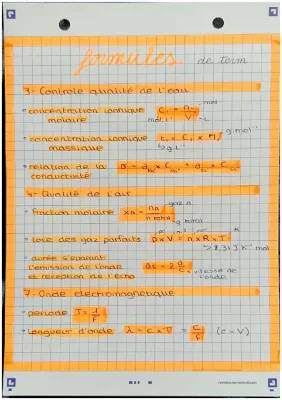 formules de term
3- Controle qualité de l'eau
concentration ionique molaire Ci = n / V mol mol.L⁻¹ L
concentration ionique massique ti = Ci × M g.mol⁻¹ g.L⁻¹
relation de la conductivité σ
4- Qualité de l'air
fraction molaire xa = na / n total gaz n
loi des gaz parfaits p×V = n×R×T 8,31 J K⁻¹ mol
durée séparant
l'émission de l'onde Δt = 2 d/c vitesse de
et réception de l'écho l'onde
7- Onde électromagnétique
période T = 1/f
longueur d'onde λ = c×T = c/f (c = v)